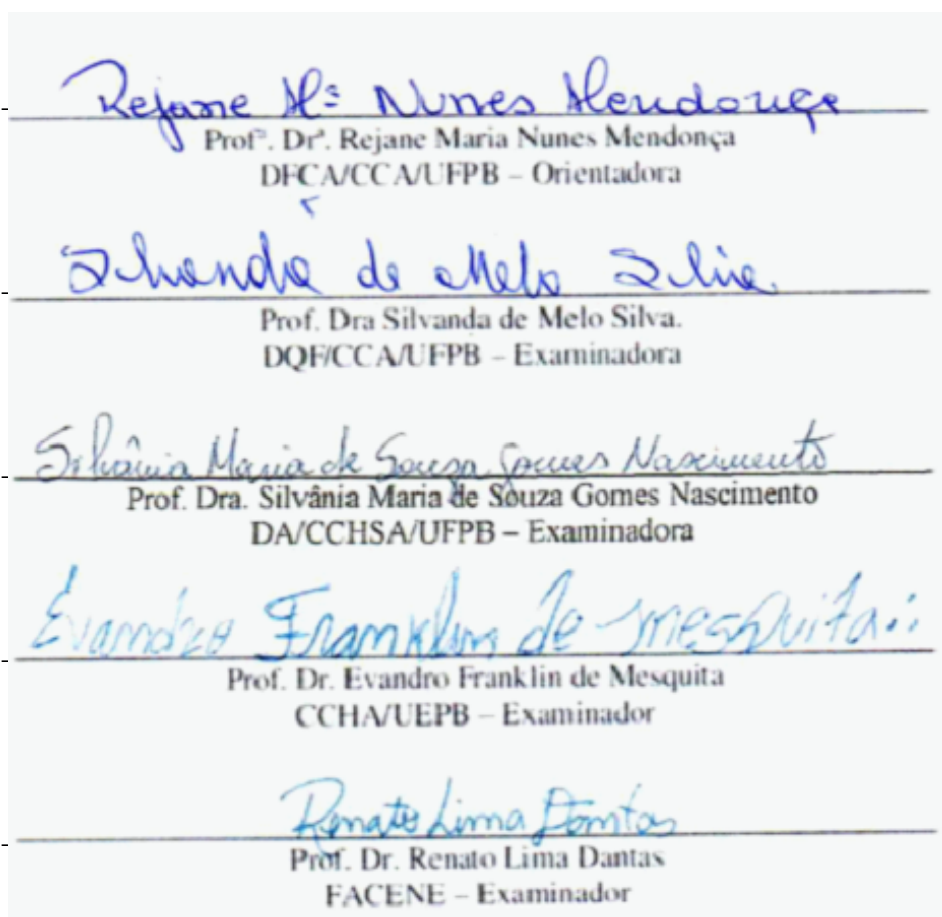 Rejane Mª Nunes Mendonça
Profª. Drª. Rejane Maria Nunes Mendonça
DFCA/CCA/UFPB – Orientadora
Silvanda de Melo Silva
Prof. Dra Silvanda de Melo Silva.
DQF/CCA/UFPB – Examinadora
Silvânia Maria de Souza Gomes Nascimento
Prof. Dra. Silvânia Maria de Souza Gomes Nascimento
DA/CCHSA/UFPB – Examinadora
Evandro Franklin de Mesquita
Prof. Dr. Evandro Franklin de Mesquita
CCHA/UEPB – Examinador
Renato Lima Dantas
Prof. Dr. Renato Lima Dantas
FACENE – Examinador